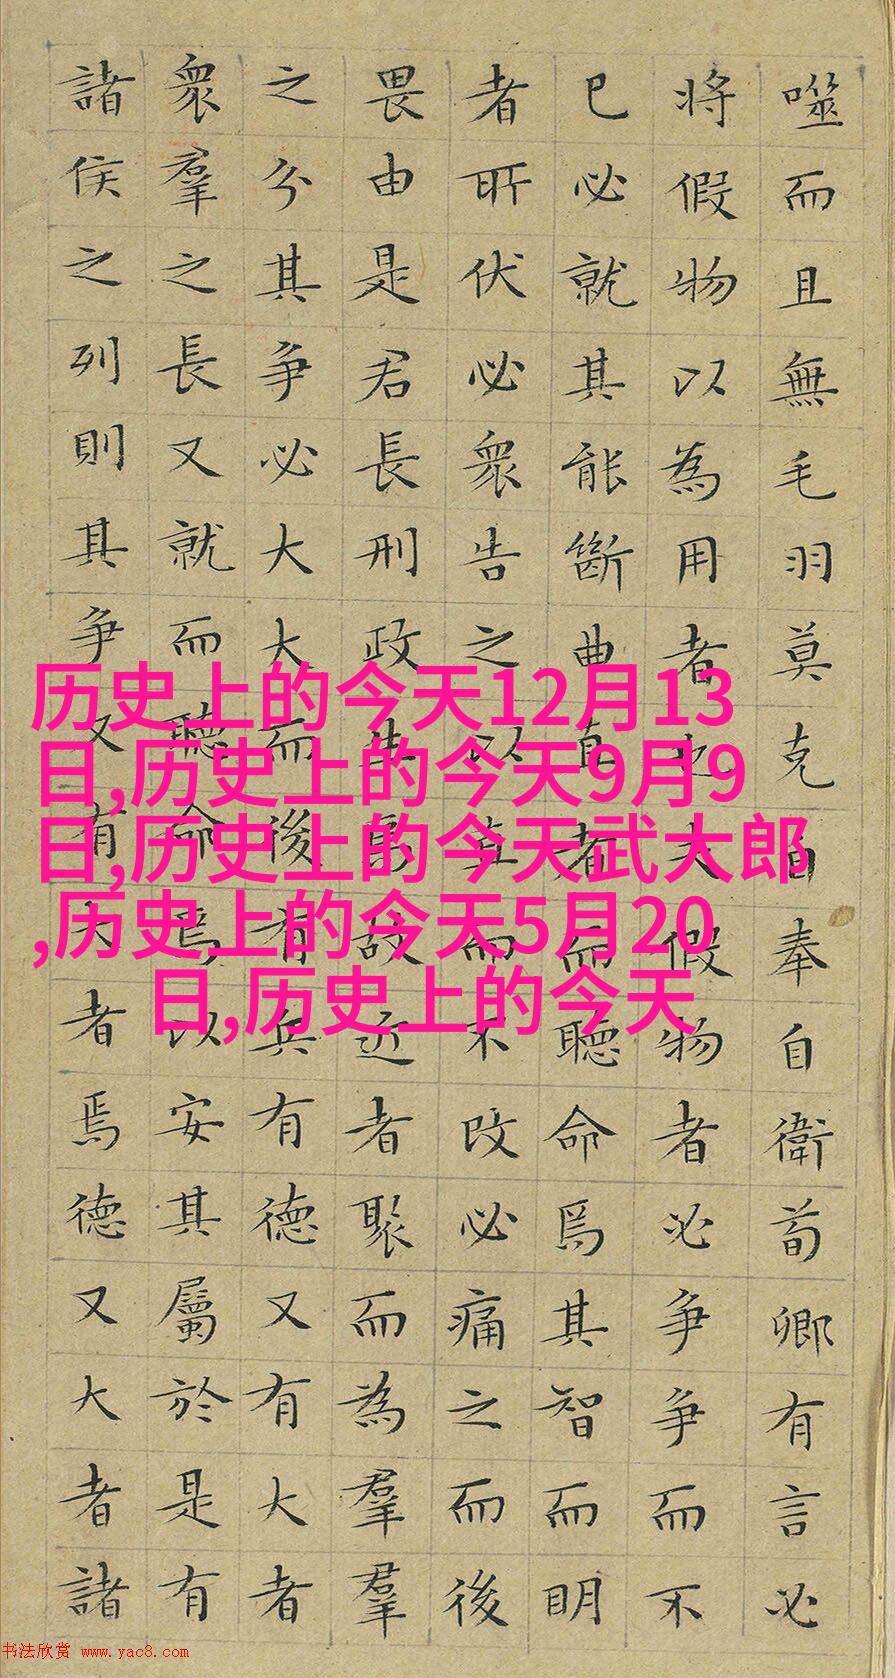 噬而且無毛羽莫克自奉自衛荀卿有言必
将假物以為用者也夫假物者必争争而不
已必就其能斷曲直者而聽命焉其智而明
者所伏必衆告之以直而不改必痛之而後
畏由是君長刑政生焉故近者聚而為羣羣
之分其争必大大而後有兵有德又有大者
衆羣之長又就而聽命焉以安其屬於是有
諸侯之列則其争又有大者焉德又大者諸
历史上的今天12月13
日,历史上的今天9月9
日,历史上的今天武大郎
,历史上的今天5月20
日,历史上的今天
书法欣赏 www.yac8.com